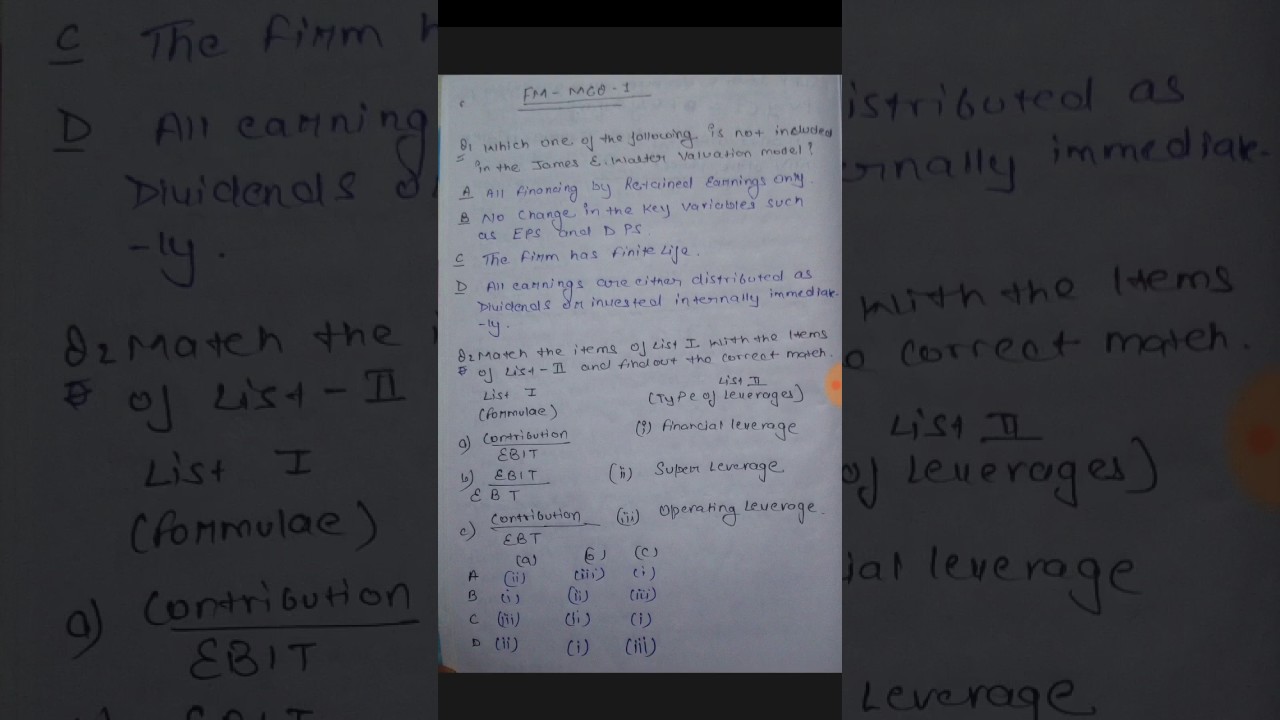 FM - MCQ - 1
Q1 Which one of the following is not included
in the James E. Walter Valuation model?
A All financing by Retained Earnings only.
B No Change in the Key Variables such
as EPS and DPS
C The Firm has Finite Life.
D All earnings are either distributed as
Dividends or invested internally immediate-
-ly.
Q2 Match the items of List I with the Items
of List - II and findout the correct match.
List I
(formulae)
List II
(Type of Leverages)
a) Contribution
EBIT
(i) financial leverage
b) EBIT
EBT
(ii) Super Leverage
c) Contribution
EBT
(iii) Operating Leverage.
(a) (b) (c)
A (ii) (iii) (i)
B (i) (ii) (iii)
C (iii) (ii) (i)
D (ii) (i) (iii)